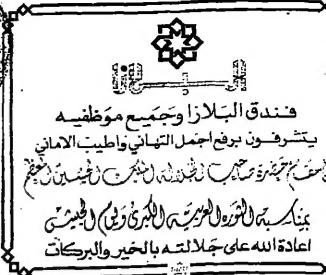 البلازا
فندق البلازا وجميع موظفيه
يتشرفون برفع اجمل التهاني واطيب الاماني
لمقام حضرة صاحب الجلالة الملك الحسين المعظم
بمناسبة الثورة العربية الكبرى ويوم الجيش
اعادة الله على جلالته بالخير والبركات